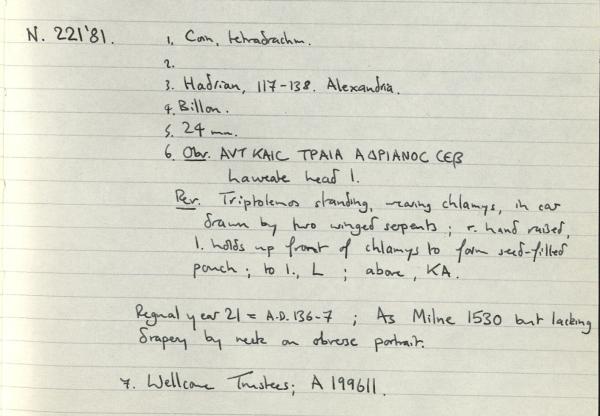 N. 221'81.
1. Coin, tetradrachm.
2.
3. Hadrian, 117-138. Alexandria.
4. Billon.
5. 24 mm.
6. Obv. ΑVΤ ΚΑΙC ΤΡΑΙΑ ΑΔΡΙΑΝΟC CЄβ
Laureate head l.
Rev. Triptolemos standing, wearing chlamys, in car
drawn by two winged serpents; r. hand raised,
l. holds up front of chlamys to form seed-filled
pouch; to l., L ; above, KA.
Regnal year 21 = A.D. 136-7 ; As Milne 1530 but lacking
drapery by neck on obverse portrait.
7. Wellcome Trustees; A 199611.